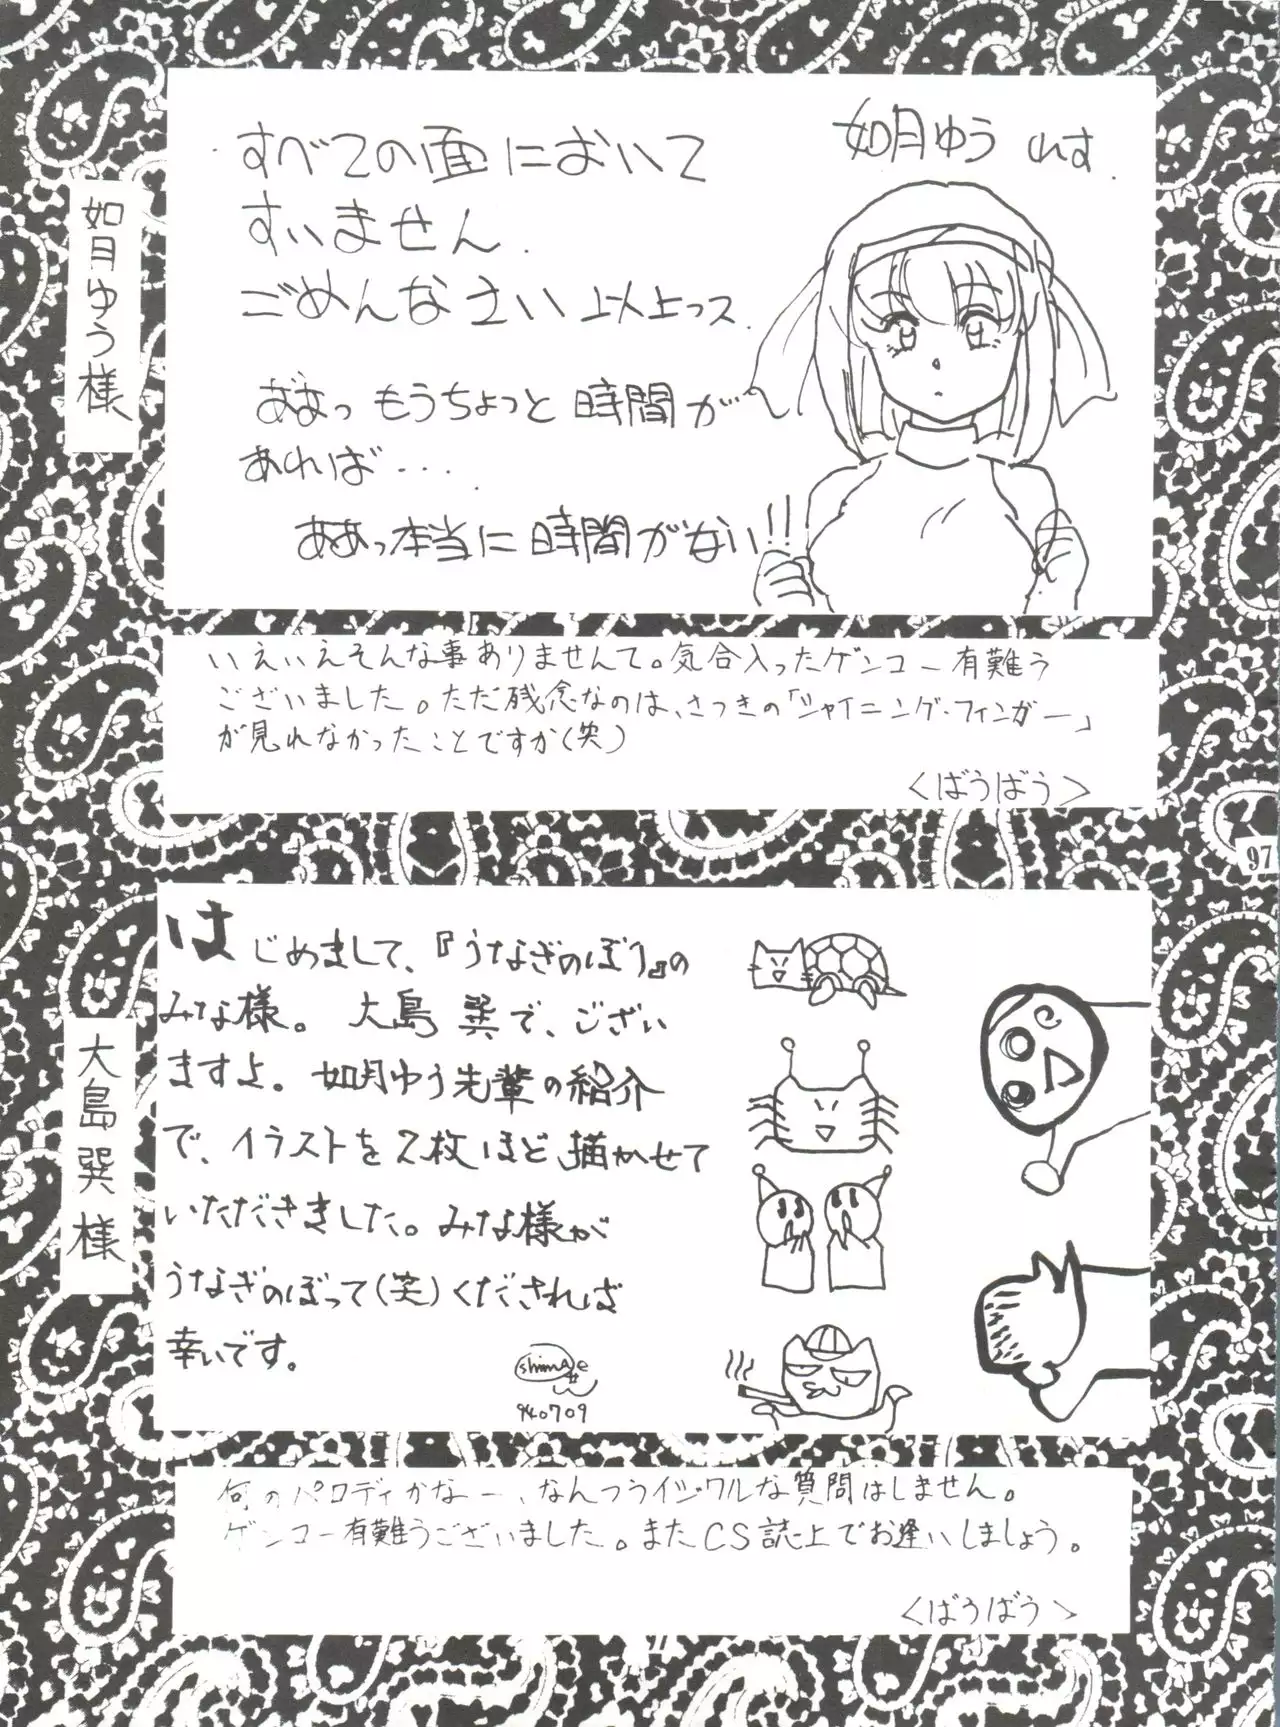 如月ゆう様
如月ゆう れす.
すべての面において
すいません.
ごめんなさい 以上っス.
ああっ もうちょっと 時間が
あれば・・・
ああっ本当に時間がない!!
いえいえそんな事ありませんて。気合入ったゲンコー有難う
ございました。ただ残念なのは、さつきの「シャイニング・フィンガー」
が見れなかったことですか(笑)
<ばうばう>
97
大島巽様
はじめまして、『うなぎのぼり』の
みな様。 大島 巽で、ござい
ますよ。如月ゆう先輩の紹介
で、イラストを2枚ほど描かせて
いただきました。みな様が
うなぎのぼって(笑)くだされば
幸いです。
940709
何のパロディかなー、なんつうイジワルな質問はしません。
ゲンコー有難うございました。またCS誌上でお逢いしましょう。
<ばうばう>